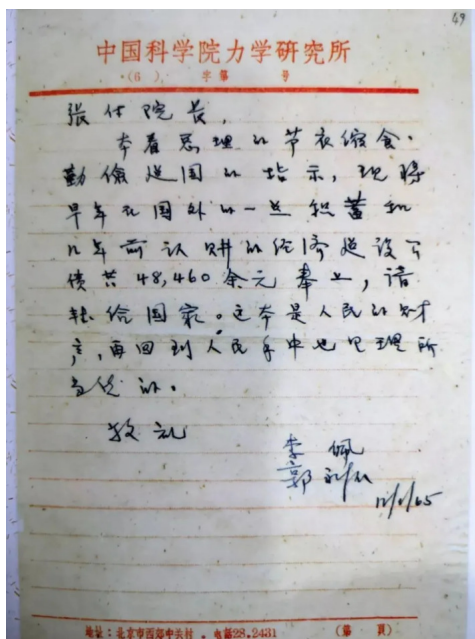 49
中国科学院力学研究所
(6) 字第 号
张付院长,
本着总理的节衣缩食、
勤俭建国的指示,现将
早年在国外的一点积蓄和
几年前认购的经济建设公
债共48,460余元奉上,请
转给国家。这本是人民的财
产,再回到人民手中也是理所
当然的。
敬礼
李佩
郭永怀
12/1/65
地址:北京市西郊中关村.电话28.2431 (第 页)